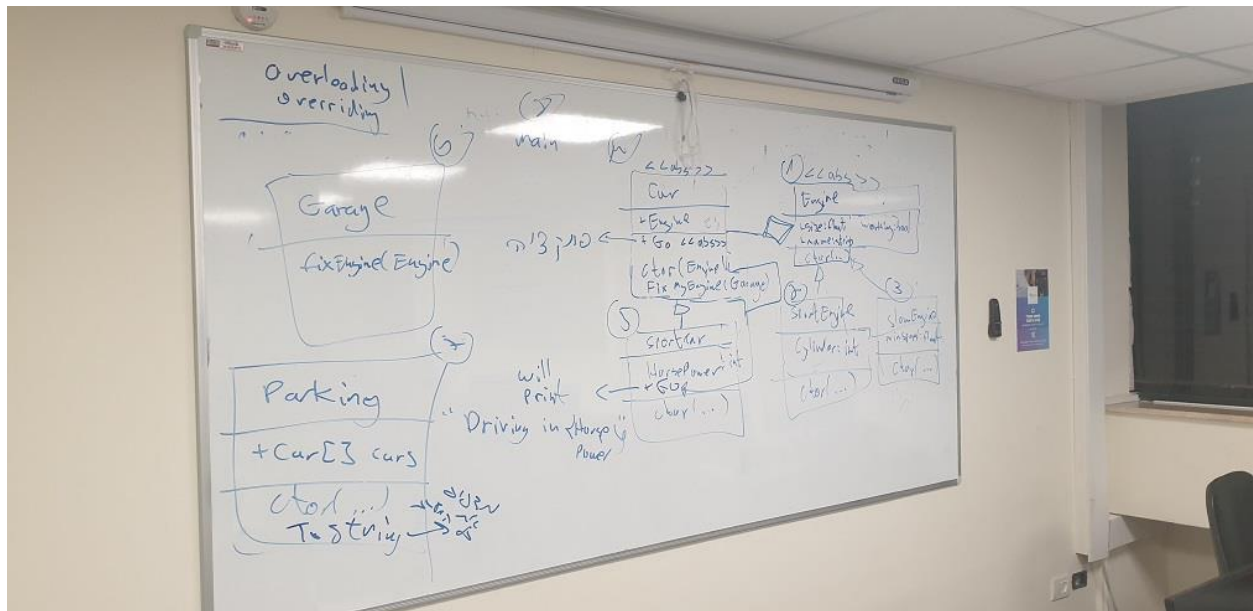 Overloading /
overriding
6
Garage
fixEngine(Engine)
7
Parking
+Car[] cars
ctor(...)
ToString
main
<<abs>>
Car
+Engine
+Go <<abs>>
ctor(Engine)
Fix myEngine(Garage)
פונקציה
5
SportCar
HorsePower:int
+Go
ctor(...)
will
print
"Driving in {Horse
Power}"
1
<<abs>>
Engine
+size:float working:bool
+name:string
ctor(...)
2
SportEngine
Cylinder:int
ctor(...)
3
slowEngine
ctor(...)